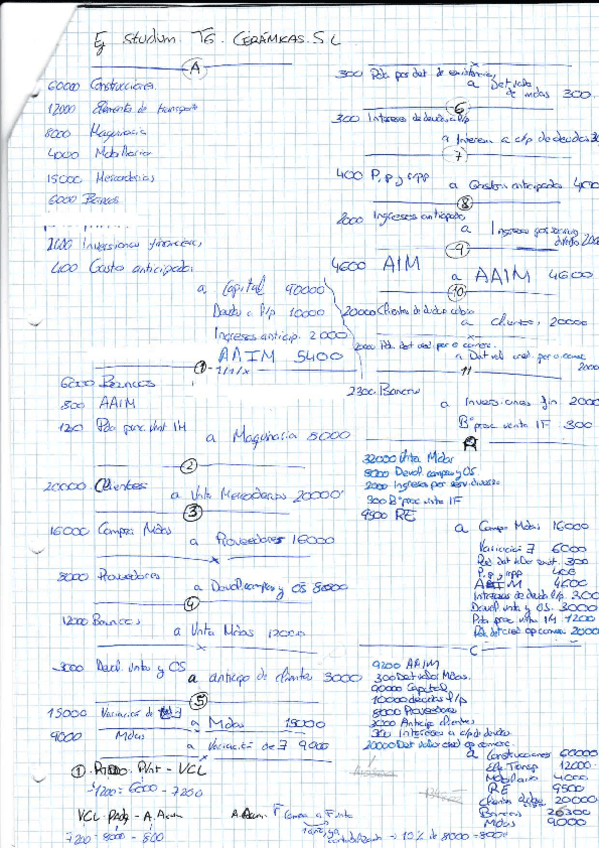 Ej Studium. T6. CERÁMICAS. S L
A
60000 Construcciones
12000 Elementos de transporte
8000 Maquinaria
4000 Mobiliario
15000 Mercaderías
6000 Bancos
Inversiones financieras
400 Gastos anticipados
a Capital 90000
Deudas l/p 10000
Ingresos anticip. 2000
AAIM 5400
1 - 1/1/x
6000 Bancos
800 AAIM
1200 Pda proc. vnt IM
a Maquinaria 8000
2
20000 Clientes
a Vnta Mercaderías 20000
3
16000 Compra Mdas
a Proveedores 16000
x
8000 Proveedores
a Devol. compras y OS 8000
4
12000 Bancos
a Vnta Mdas 12000
x
3000 Devol. vntas y OS
a anticipo de clientes 3000
5
15000 Variación de
a Mdas 15000
9000 Mdas
a Variación de 9000
x
1 PVnt - VCL
-1200 = 6000 - 7200
VCL = - A. Acum
7200 = 8000 - 800
10% de 8000 = 800
x
300 Pda por det. de existencias
a Det valor de mdas 300
6
300 Intereses de deudas l/p
a Intereses a c/p de deudas
7
400 P.p. y spp
a Gastos anticipados 400
8
2000 Ingresos anticipados
a Ingresos por servicios
9
4600 AIM
a AAIM 4600
10
20000 Clientes de dudoso cobro
a clientes 20000
x
2000 Pda. det cred. por o comerc.
a Det val cred. por o comerc 2000
11
2300 Bancos
a Inversiones fin 2000
Bº proc. venta IF 300
R
32000 Vnta Mdas
8000 Devol. compras y OS.
2000 Ingresos por serv. diversos
300 Bº proc vnta IF
9500 RE
a Compra Mdas 16000
Variación 6000
Pda det valor exist. 300
P.p. y spp 400
AIM 4600
Intereses de deuda l/p. 300
Devol vnta y OS. 3000
Pda proc. vnta IM 1200
Pda det cred op comerc. 2000
C
9200 AAIM
300 Det valor Mdas.
90000 Capital
10000 deudas l/p
8000 Proveedores
3000 Anticipo clientes
300 Intereses a c/p de deudas
a Construcciones 60000
Ele Transp. 12000
Mobiliario 4000
RE 9500
Clientes 20000
Bancos 26300
Mdas 9000